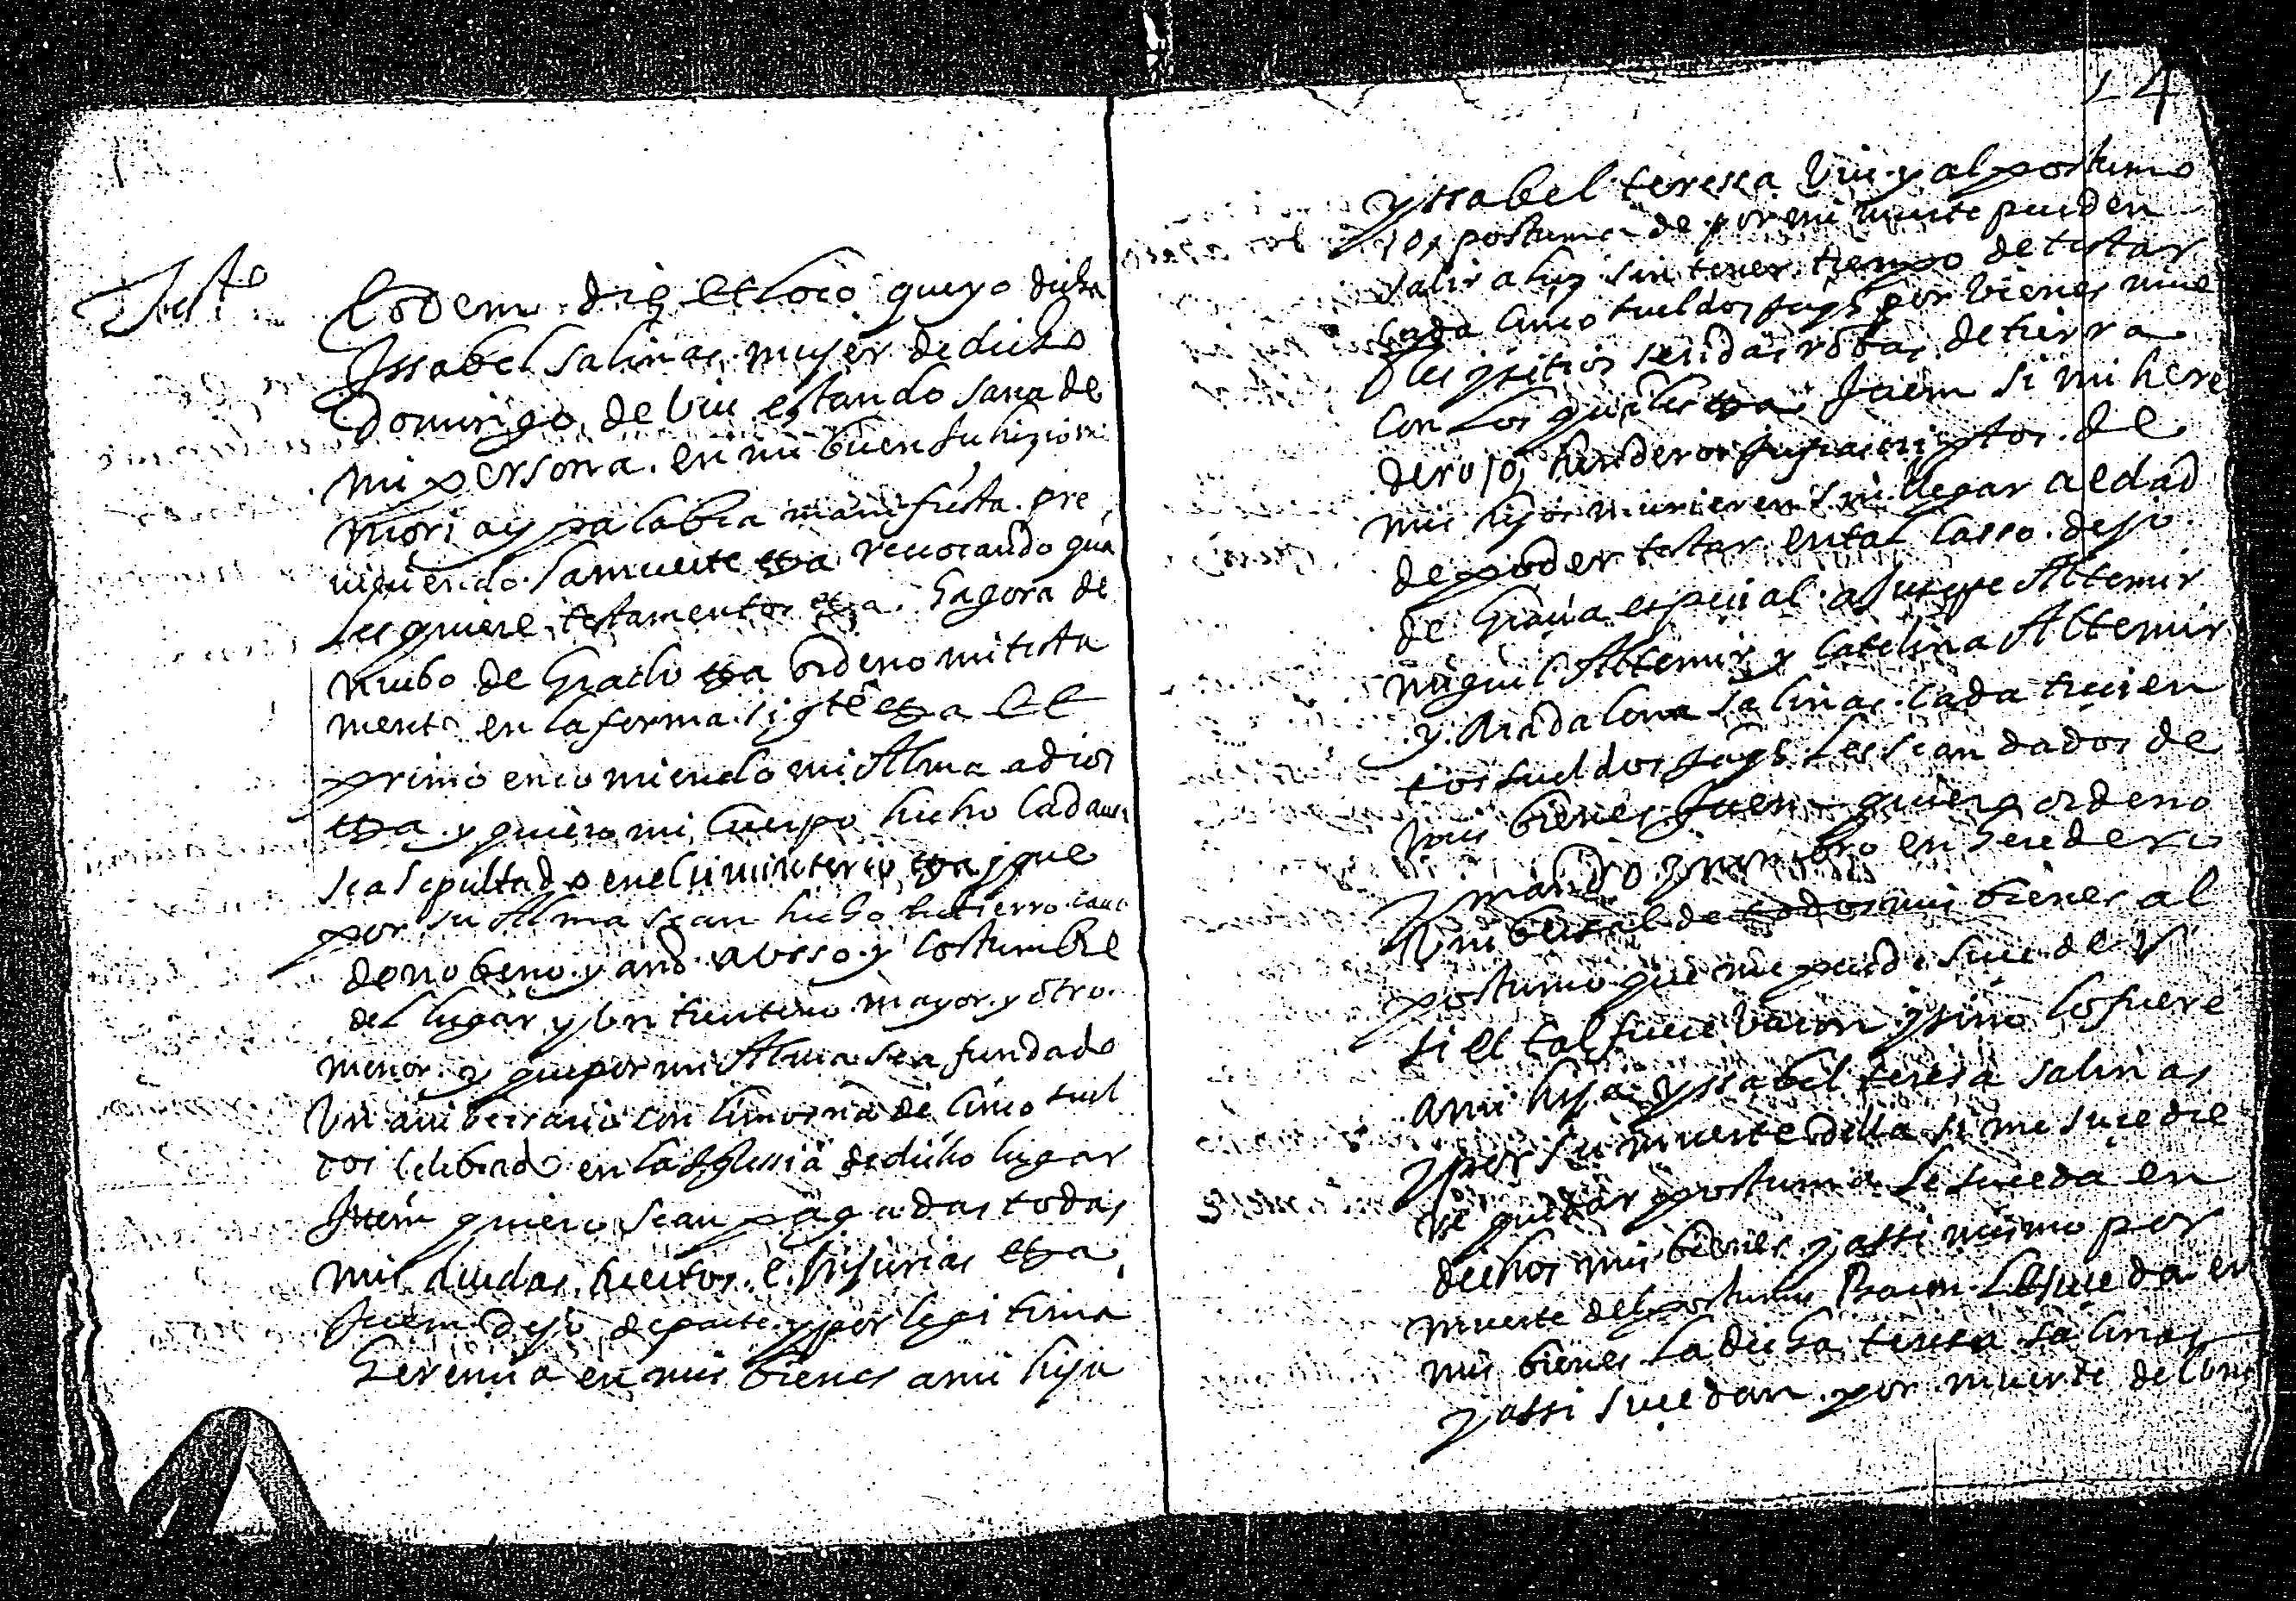 Testo
Eodem die et loco que yo dicha
Issabel salinas mujer de dicho
Domingo de Viu estando sana de
mi persona en mi buen juhizio me
moria y palabra manifiesta pre
uiniendo la muerte etza reuocando qua
lesquiere testamentos etza hagora de
nuebo de grado etza ordeno mi testa
mento en la forma sigte etza Et
primo encomiendo mi Alma a dios
etza y quiero mi cuerpo hecho cadauer
sea sepultado en el ciminterio etza y que
por su Alma sean hecho entierro cauo
de nobeno y and a usso y costumbre
del lugar y un treinteno mayor y otro
menor y que por mi Alma sea fundado
Un anibersario con limosna de cinco suel
dos celebrado en la Yglesia de dicho lugar
Item quiero sean pagadas todas
mis deudas tuertos e injurias etza
Item dejo de parte y por legitima
herencia en mis bienes a mi hija
14
yssabel teressa Viu y al postumo
o postuma de por mi muerte pueden
salir a luz sin tener tiempo de testar
cada cinco sueldos jaqs por bienes mue
bles y sitios sendas robas de tierra
con los quales etza Item si mi here
dero o herederos infrascriptos de
mis hijos murieren sin llegar a edad
de poder testar en tal casso dejo
de gracia especial a Jusepe Altemir
miguel Altemir y Catelina Altemir
y Madalena salinas cada trecien
tos sueldos jaqs les sean dados de
mis bienes Item quiero ordeno
y mando y nombro en heredero
Unibersal de todos mis bienes al
postumo que me puede suceder
si el tal fuere baron y sino lo fuere
a mi hija yssabel teresa salinas
y por su muerte della si me sucedie
re quedar postuma le suceda en
dichos mis bienes y assi mismo por
muerte del postumo Baron le suceda en
mis bienes la dicha teresa salinas
y assi sucedan por muerte del uno